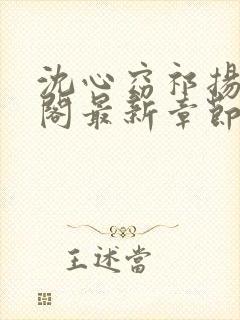 沈心窈祁揚
閣最新章節
王述當